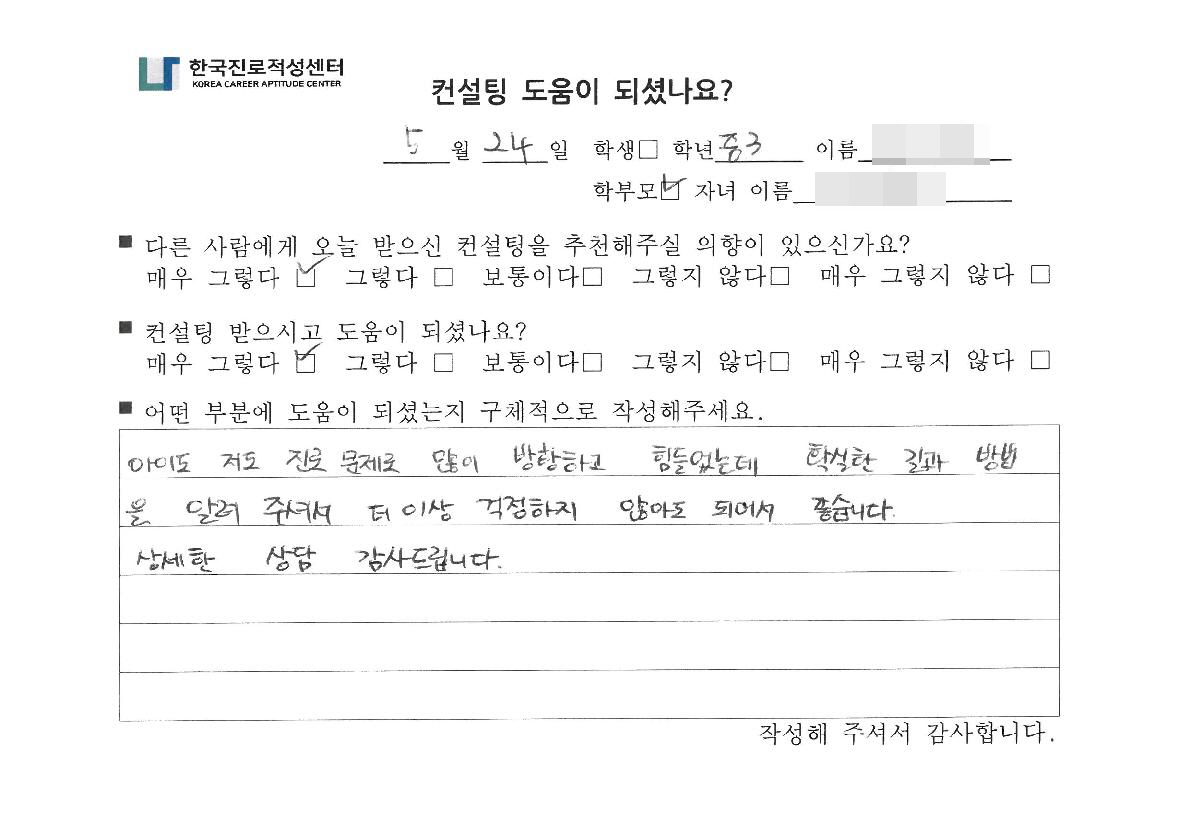 한국진로적성센터
KOREA CAREER APTITUDE CENTER
컨설팅 도움이 되셨나요?
5월 24일 학생□ 학년 중3 이름
학부모☑ 자녀 이름
■ 다른 사람에게 오늘 받으신 컨설팅을 추천해주실 의향이 있으신가요?
매우 그렇다 ☑ 그렇다 □ 보통이다□ 그렇지 않다□ 매우 그렇지 않다 □
■ 컨설팅 받으시고 도움이 되셨나요?
매우 그렇다 ☑ 그렇다 □ 보통이다□ 그렇지 않다□ 매우 그렇지 않다 □
■ 어떤 부분에 도움이 되셨는지 구체적으로 작성해주세요.
아이도 저도 진로 문제로 많이 방황하고 힘들었는데 확실한 길과 방법
을 알려 주셔서 더 이상 걱정하지 않아도 되어서 좋습니다.
상세한 상담 감사드립니다.
작성해 주셔서 감사합니다.